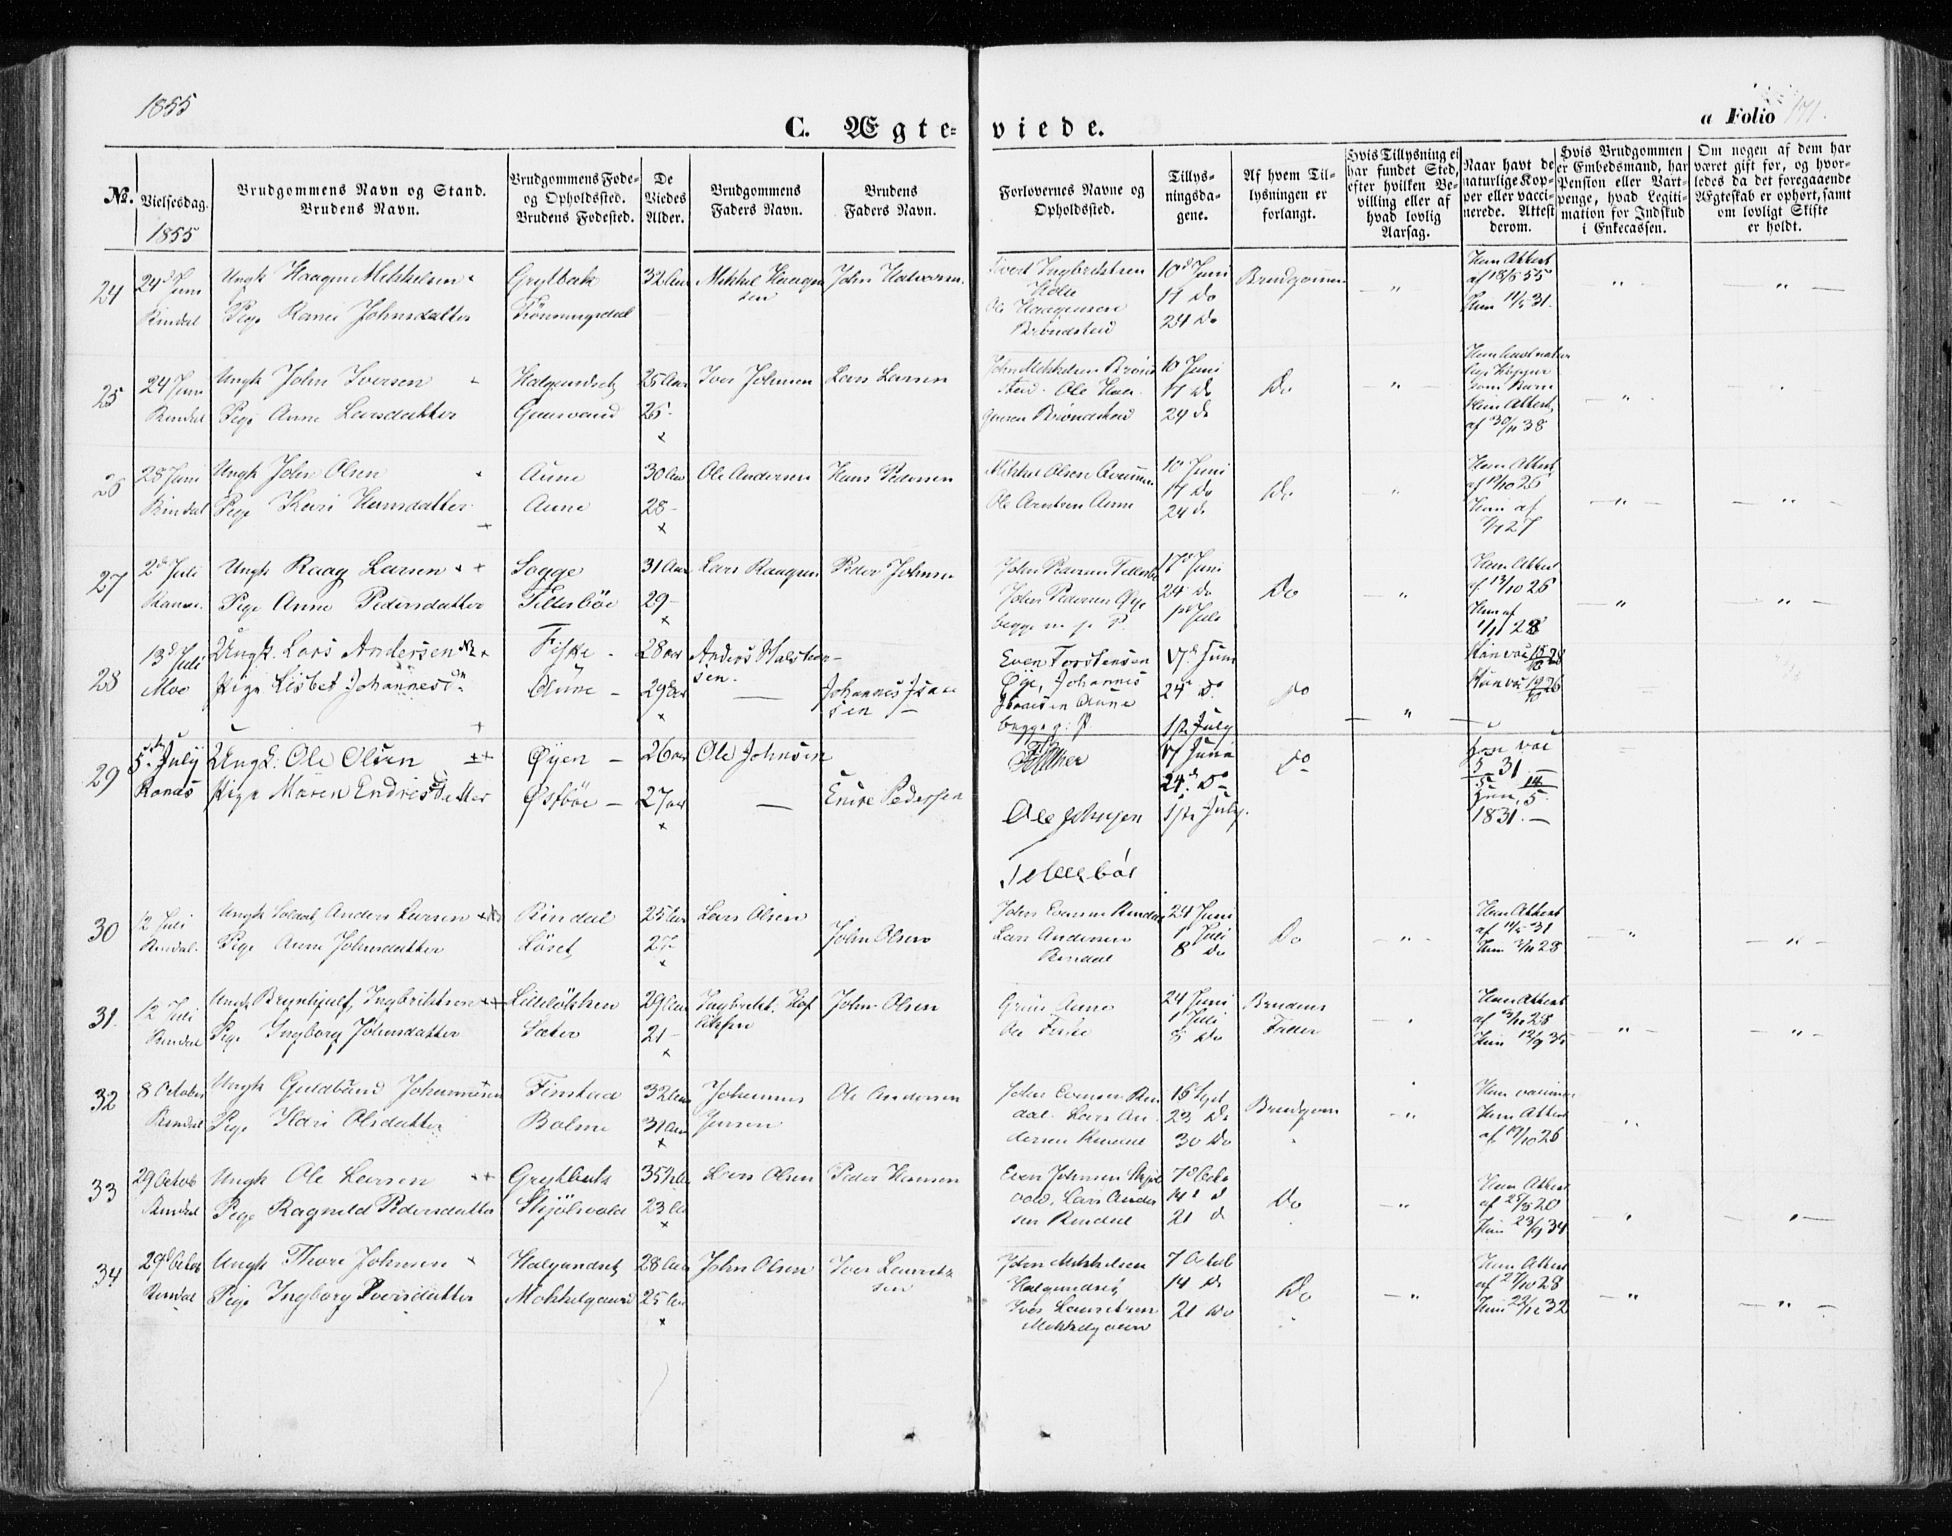 1855
C. Ægte-
viede.
a Folio 171.
No.
Vielsesdag.
1855
Brudgommens Navn og Stand.
Brudens Navn.
Brudgommens Føde-
og Opholdssted.
Brudens Fødested.
De
Viedes
Alder.
Brudgommens
Faders Navn.
Brudens
Faders Navn.
Forlovernes Navne og
Opholdssted.
Tillys-
ningsda-
gene.
Af hvem Til-
lysningen er
forlangt.
Hvis Tillysning ei
har fundet Sted,
efter hvilken Be-
villing eller af
hvad lovlig
Aarsag.
Naar havt de
naturlige Kop-
per eller vacci-
nerede. Attest
derom.
Hvis Brudgommen
er Embedsmand, har
Pension eller Vart-
penge, hvad Legiti-
mation for Indskud
i Enkecassen.
Om nogen af dem har
været gift for, og hvor-
ledes da det foregaaende
Ægteskab er ophørt, samt
om lovligt Skifte
er holdt.
24
24d Juni
Rindal
Ungk Haagen Mikkelsen
Pige Johnsdatter
Grytbak
Rønningsdal
32 Aar
Mikkel Haagen
sen
John Halvorsen
Sivert Ingebrigtsen
Holte
Ole Haagensen
Brøndstad
10d Juni
17 Do
24 Do
Brudgommen
Ham Attest
af 18/5 55
Hun 11/5 31.
25
24 Juni
Rindal
Ungk John Iversen
Pige Anne Larsdatter
Halgundset
25 Aar
26-
Iver Johnsen
Lars Larsen
John Mikkelsen Brønd
stad. Ole Haa-
gensen Brøndstad
10 Juni
17 Do
24 Do
Do
Ham havt natur
lige Kopper
som Barn
Hun Attest
af 30/11 38
26
28 Juni
Rindal
Ungk John Olsen
Pige Kari Hansdatter
Aune
Aune
30 Aar
28-
Ole Andersen
Hans Pedersen
Mikkel Olsen
Ole Arntsen Aune
10 Juni
17 Do
24 Do
Do
Ham Attest
af 19/10 26
Hun af
27
27
2d Juli
Ranæs
Ungk Raag Larsen
Pige Anne Pedersdatter
Sogge
Tillerbøe
31 Aar
29-
Lars Raagsen
Peder Johnsen
John Pedersen Tillerbø
John Pedersen Øye
begge
17d Juni
24 Do
1st Juli
Do
Ham Attest
af 13/10 26
Hun af
1/11 28
28
13d Juli
Moe
Ungk. Lars Andersen
Pige Lisbet Johannesd.
Fiske -
Aune -
28 aar
29 aar
Anders Halstein-
sen.
Johannes Isac
sen
Even Torstensen
Øye, Johannes
Isaacsen Aune
begge
17de Juni
24de Do
1ste July
Do
Han vac 15/10 28
Hun vac 19/10 26
29
5te July
Ranæs
Ungk: Ole Olsen
Pige Maren Endresdatter
Øyen -
Østbøe -
26 aar
27 aar
Ole Johnsen
Endre Pedersen
Ole Johnsen
Tellesbøe
17 June
24de Do
1ste July.
Do
Han vac
5/5 31.
Hun 14/5.
1831.
30
12 Juli
Rindal.
Ungk Soldat Anders Larsen
Pige Anne Johnsdatter
Rindal
Løset
25 Aar
27
Lars Olsen
John Olsen
John Evensen Rindal
Lars Andersen
Rindal
24 Juni
1 Juli
8 Do
Do
Ham Attest
af 11/5 31
Hun 28
31.
12 Juli
Rindal
Ungk Brynhjulf Ingbrikksen
Pige Ingeborg Johnsdatter
Lilleløkken
Sæter
29 Aar
21-
Ingbrikt
John Olsen
Aune
Ole Fiske
24 Juni
1 Juli
8 Do
Brudens
Fader
Ham Attest
af 28
Hun 12/9 35
32
8 October
Rindal
Ungk Guldbrand Johannesen
Pige Kari Olsdatter
Finstad
Bolme
32 Aar
31 Aar
Johannes
Jensen
Ole Andersen
John Evensen Rin
dal. Lars An-
dersen Rindal
16 Sept
23 Do
30 Do
Brudgom
Ham vaccineret
Hun Attest
af 19/10 26
33
29 Octob
Rindal
Ungk Ole Larsen
Pige Ragnild Pedersdatter
Grytbak
Skjølsvold
35 Aar
23 Aar
Lars Olsen
Peder Hansen
Even Johnsen Skjøls
vold. Lars Ander
sen Rindal
7d Octo
14d d
21 d
Do
Ham Attest
af 25/5 20
Hun 23/9 34
34
29d Octob
Rindal
Ungk Thore Johnsen
Pige Ingborg Iversdatter
Halgundset
Mokkelgaard
28 Aar
25 Aar
John Olsen
Iver Laurits
sen
John Mikkelsen
Halgundset
Iver Lauritsen
Mokkelgaard
7 Octob
14 Do
21 Do
Do
Ham Attest
af 27/10 28
Hun 22/12 32